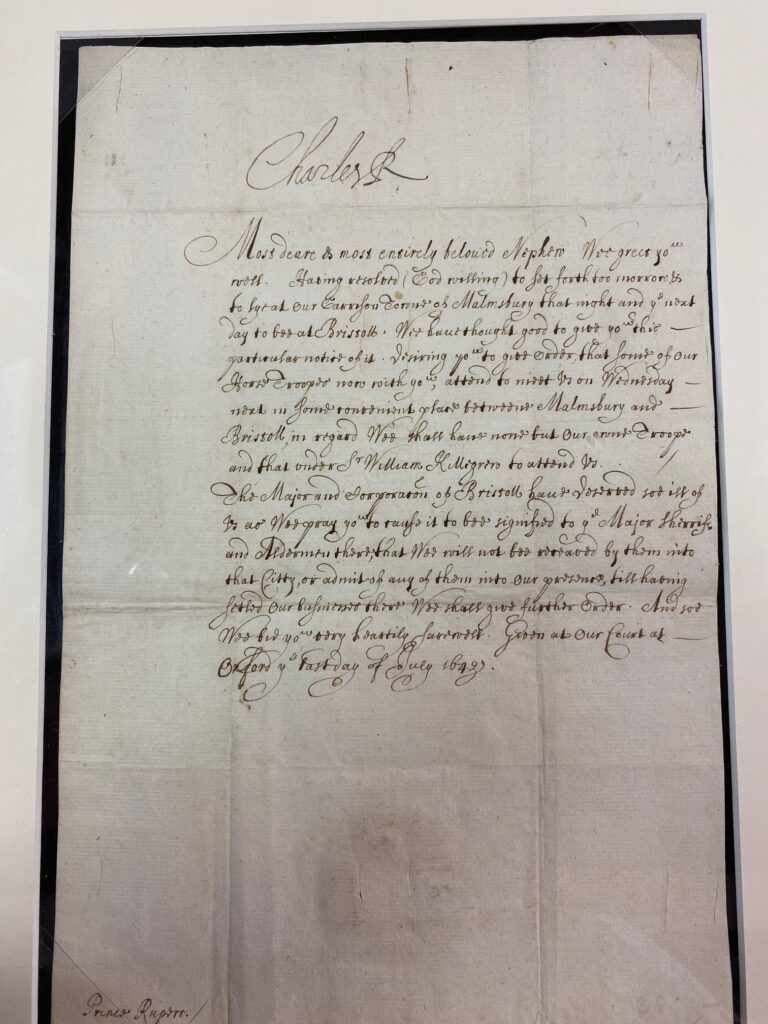 Charles R
Most deare & most entirely beloved Nephew Wee greet you
well. Having resolved (God willing) to set forth too morrow &
to lye at Our Garrison Towne of Malmsbury that night and ye next
day to bee at Bristoll. Wee have thought good to give you this —
particular notice of it. Desiring you to give Order, that some of Our
Horse Troopes now with you, attend to meet Us on Wednesday —
next in some convenient place betweene Malmsbury and —
Bristoll, in regard Wee shall have none but Our owne Troope
and that under Sr William Killigrew to attend Us. /
The Major and Corporacon of Bristoll have deserved soe ill of
Us as Wee pray you to cause it to bee signified to ye Major Sherriffs
and Aldermen there, that Wee will not bee receaved by them into
that Citty, or admit of any of them into Our presence, till having
setled Our businesses there Wee shall give further Order. And soe
Wee bid you very heartily farewell. Given at Our Court at —
Oxford ye last day of July 1643.
Prince Rupert. /